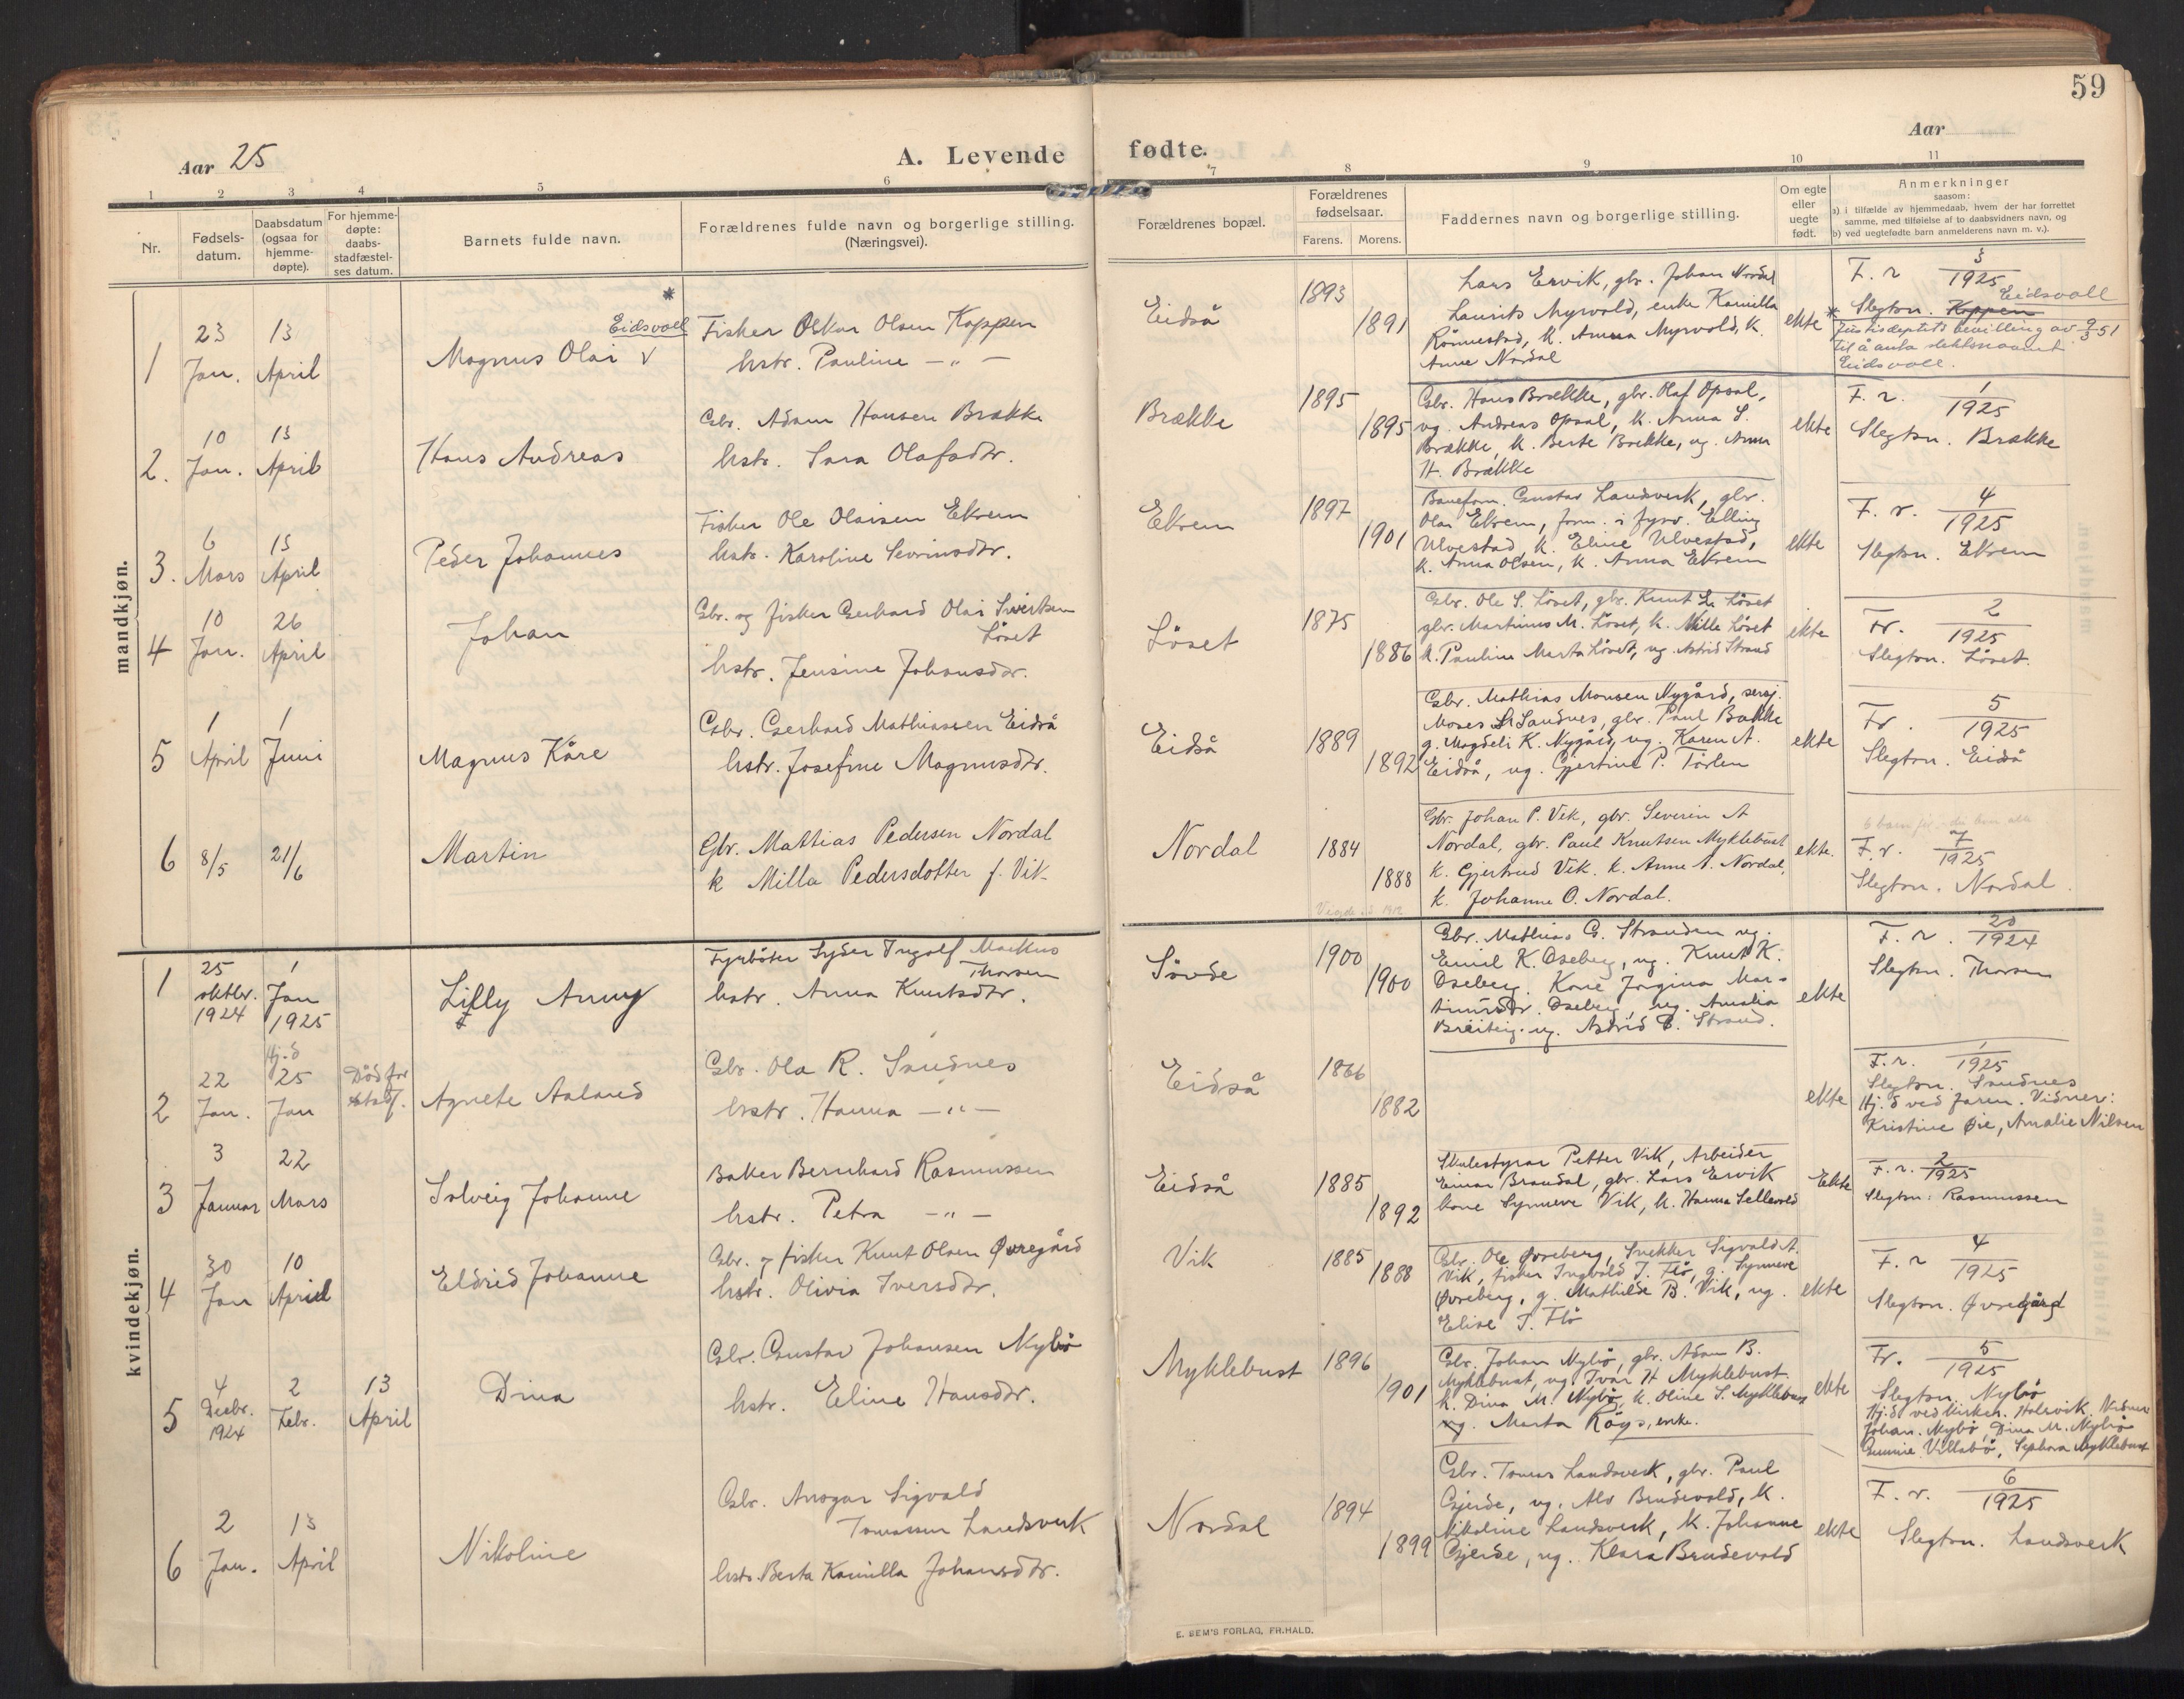 59
Aar 25
A. Levende fødte.
Aar
1 2 3 4 5 6 7 8 9 10 11
Nr.
Fødsels-
datum.
Daabsdatum
(ogsaa for
hjemme-
døpte).
For hjemme-
døpte:
daabs-
stadfæstel-
ses datum.
Barnets fulde navn.
Forældrenes fulde navn og borgerlige stilling.
(Næringsvei).
Forældrenes bopæl.
Forældrenes
fødselsaar.
Farens. Morens.
Faddernes navn og borgerlige stilling.
Om egte
eller
uegte
født.
Anmerkninger
saasom:
a) i tilfælde av hjemmedaab, hvem der har forrettet
samme, med tilføielse af to daabsvidners navn, og
b) ved uegtefødte barn anmelderens navn m. v.).
mandkjøn.
1
23
Jan.
13
April
*
Eidsvoll
Magnus Olai v
Fisker Oskar Olsen Koppen
hstr. Pauline —"—
Eidså
1893
1891
Lars Ervik, gbr. Johan Nordal
Laurits Myrvold, enke Kamilla
Rönnestad, k. Anna Myrvold, k.
Anne Nordal
ekte
F. r 3/1925
Eidsvoll
* Slegtsn. Koppen
Justisdeptets bevilling av 9/3 51
til å anta slektsnavnet
Eidsvoll.
2.
10
Jan.
13
April
Hans Andreas
Gbr. Adam Hansen Brække
hstr. Sara Olafsdtr.
Brække
1895
1895
Gbr. Hans Brække, gbr. Olaf Opsal,
ug. Andreas Opsal, k. Anna S.
Brække, k. Berte Brekke, ug. Anna
H. Brække
ekte
F. r. 1/1925
Slegtsn. Brække
3.
6
Mars
13
April
Peder Johannes
Fisker Ole Olaisen Ekrem
hstr. Karoline Sevrinsdtr.
Ekrem
1897
1901
Baneform. Gustav Landsverk, gbr.
Olai Ekrem, form. i fyrv. Elling
Ulvestad, k. Eline Ulvestad,
k. Anna Olsen, k. Anna Ekrem
ekte
F. r. 4/1925
Slegtsn. Ekrem
4
10
Jan.
26
April
Johan
Gbr. og fisker Gerhard Olai Sivertsen
Löset
hstr. Jensine Johansdtr.
Löset
1875
1886
Gbr. Ole S. Löset, gbr. Knut L. Löset
gbr. Martinus M. Löset, k. Milla Löset
k. Pauline Marta Löset, ug. Astrid Strand
ekte
Fr. 2/1925
Slegtsn. Löset.
5
1
April
1
Juni
Magnus Kåre
Gbr. Gerhard Mathiassen Eidså
hstr. Josefine Magnusdtr.
Eidså
1889
1892
Gbr. Mathias Monsen Nygård, sersj.
Moses Sandnes, gbr. Paul Bakke
g. Magdeli K. Nygård, ug. Karen A.
Eidså, ug. Gjertine P. Törlen
ekte
Fr. 5/1925
Slegtsn. Eidså
6
8/5
21/6
Martin
Gbr. Mathias Pedersen Nordal
k Milla Pedersdotter f. Vik
Nordal
1884
1888
Gbr. Johan P. Vik, gbr. Severin A
Nordal, gbr. Paul Knutsen Myklebust
k. Gjertrud Vik. k. Anne A. Nordal,
k. Johanne O. Nordal.
ekte.
F. r. 7/1925
Slegtsn. Nordal.
kvindekjøn.
1
25
oktbr.
1924
1
Jan
1925
Lilly Anny
Fyrböter Syder Ingolf Markus
Thorsen
hstr. Anna Knutsdtr.
Sövde
1900
1900
Gbr. Mathias G. Stranden ug.
Emil K. Oseberg, ug. Knut K.
Oseberg. Kone Jorgina Mar-
tinusdtr. Oseberg, ug. Amalia
Breiteig. ug. Astrid B. Strand.
ekte
F. r. 20/1924
Slegtsn. Thorsen
2
22
Jan.
Hj.d
25
Jan
Död før
stadf.
Agnete Aaland
Gbr. Ola R. Sandnes
hstr. Hanna —"—
Eidså
1866
1882
ekte
F. r. 1/1925
Slegtsn. Sandnes
Hj.d ved faren. Vidner:
Kristine Øie, Amalie Nilsen
3
3
Januar
22
Mars
Solveig Johanne
Baker Bernhard Rasmussen
hstr. Petra —"—
Eidså
1885
1892
Skulestyrar Petter Vik, Arbeider
Einar Brandal, gbr. Lars Ervik
kone Synneve Vik, k. Hanna Sellevold
Ekte
F. r. 2/1925
Slegtsn: Rasmussen
4
30
Jan
10
April
Eldrid Johanne
Gbr. og fisker Knut Olsen Øvregård
hstr. Olivia Iversdtr.
Vik
1885
1888
Gbr. Ole Øvreberg, Snekker Sigvald A.
Vik, fisker Ingvald J. Flö, g. Synneve
Øvreberg, g. Mathilde B. Vik, ug.
Elise J. Flö
ekte
F. r 4/1925
Slegtsn. Øvregård
5
4
Decbr.
1924
2
Febr.
13
April
Dina
Gbr. Gustav Johansen Nybö
hstr. Eline Hansdtr.
Myklebust
1896
1901
Gbr. Johan Nybö, gbr. Adam B.
Myklebust, ug Ivar H Myklebust.
k. Dina M. Nybö, k. Oline S. Myklebust
ug. Marta Röys, enke.
ekte
Fr. 5/1925
Slegtsn. Nybö
Hj.d ved kirkes. Holsvik. Vidner
Johan Nybö, Dina M. Nybö
Gunnie Villabö, Sephora Myklebust
6
2
Jan.
13
April
Nikoline
Gbr. Ansgar Sigvald
Tomassen Landsverk
hstr. Berta Kamilla Johansdtr.
Nordal
1894
1899
Gbr. Tomas Landsverk, gbr. Paul
Gjerde, ug. Alv Brudevold, k.
Nikoline Landsverk, k. Johanne
Gjerde, ug. Klara Brudevold
ekte
F. r. 6/1925
Slegtsn. Landsverk
E. SEM'S FORLAG, FR.HALD.